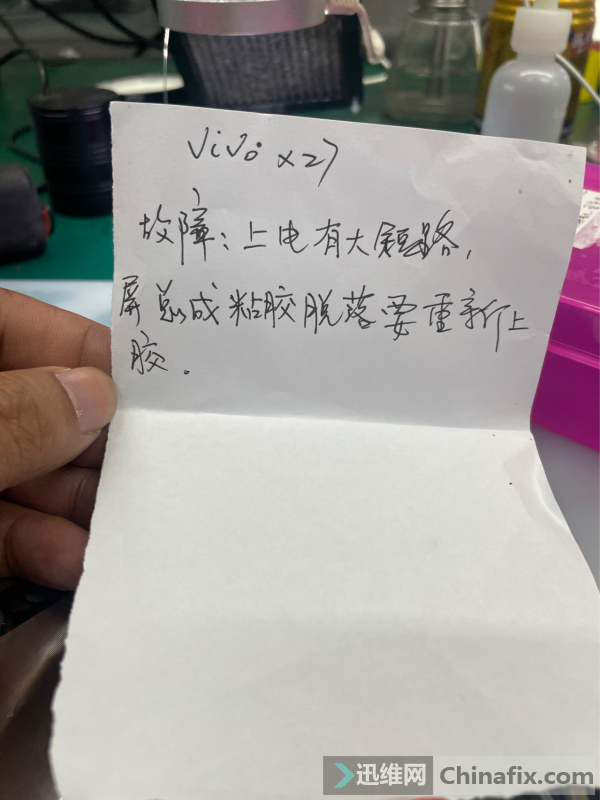 vivo x27
故障：上电有大短路，
屏总成粘胶脱落要重新上
胶.
迅维网 Chinafix.com